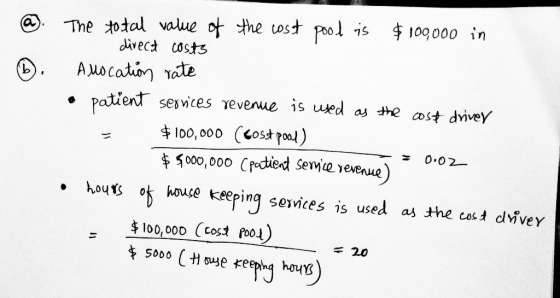 (a). The total value of the cost pool is $ 100,000 in
direct costs
(b). Allocation rate
• patient services revenue is used as the cost driver
= $100,000 (cost pool) / $5000,000 (patient service revenue) = 0.02
• hours of house keeping services is used as the cost driver
= $100,000 (cost pool) / $ 5000 (House keeping hours) = 20